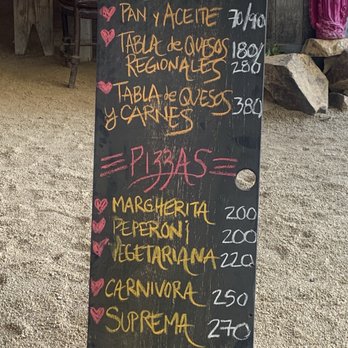 PAN Y ACEITE 70/90
TABLA de QUESOS 180/
REGIONALES 280
TABLA de QUESOS
Y CARNES 380
PIZZAS
MARGHERITA 200
PEPERONI 200
VEGETARIANA 220
CARNIVORA 250
SUPREMA 270